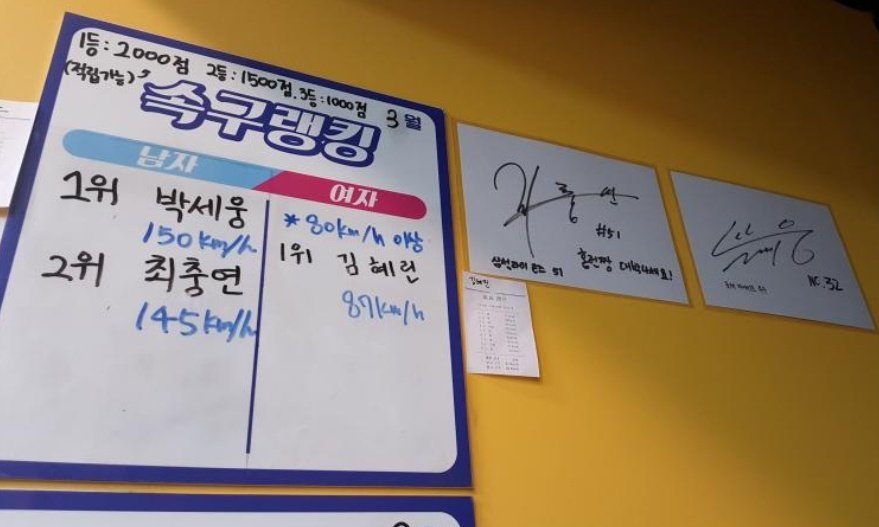 1등: 2000점 2등: 1500점, 3등: 1000점
(적립가능)
3월
속구랭킹
남자
여자
1위 박세웅
150km/h
2위 최충연
145km/h
* 80km/h 이상
1위 김혜린
87km/h
#51
삼성라이온즈 51
홈런짱 대박나세요!
NO. 32